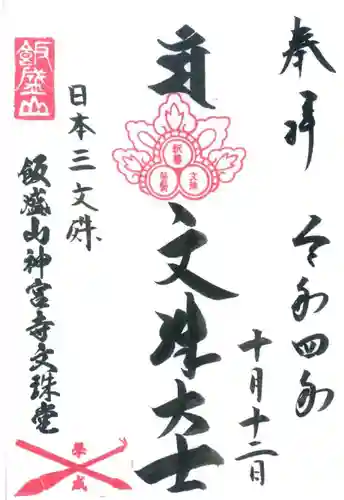 奉拝
令和四年
十月十二日
文殊大士
釈尊
普賢
文殊
日本三文殊
飯盛山
飯盛山神宮寺文珠堂
学成